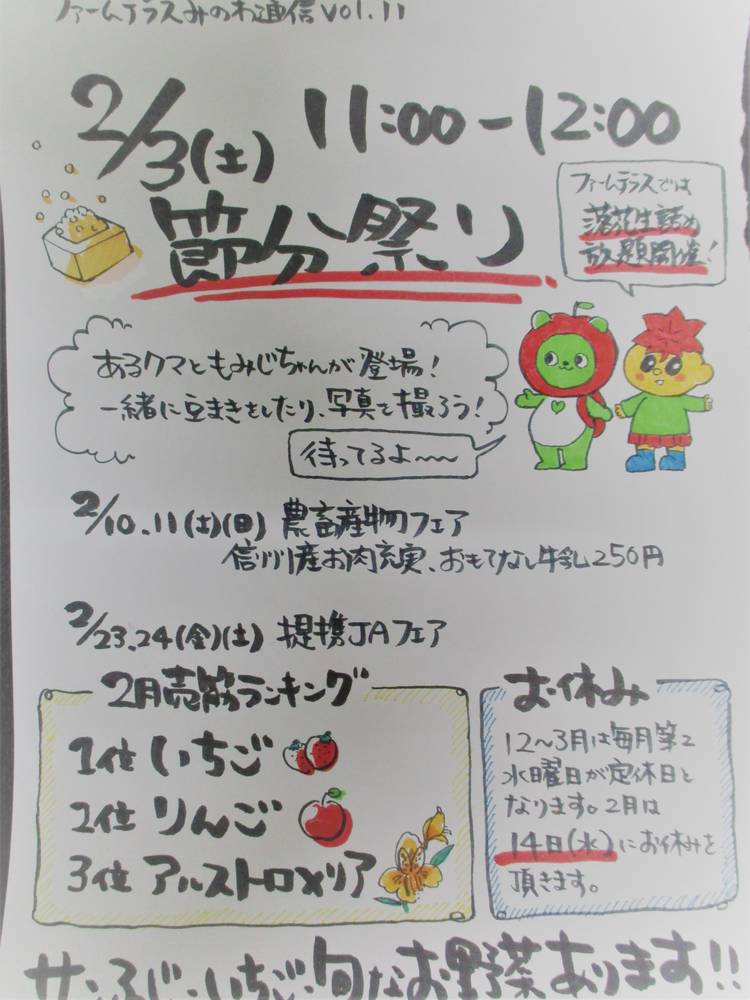 ファームテラスみのわ通信vol.11
2/3(土) 11:00-12:00
節分祭り
ファームテラスでは
落花生詰め
放題開催!
あるクマともみじちゃんが登場!
一緒に豆まきをしたり、写真を撮ろう!
待ってるよ〜〜
2/10.11(土)(日) 農畜産物フェア
信州産お肉充実、おもてなし牛乳250円
2/23.24(金)(土) 提携JAフェア
2月売筋ランキング
1位 いちご
2位 りんご
3位 アルストロメリア
お休み
12〜3月は毎月第2
水曜日が定休日と
なります。2月は
14日(水)にお休みを
頂きます。
サンふじ・いちご・旬なお野菜あります!!